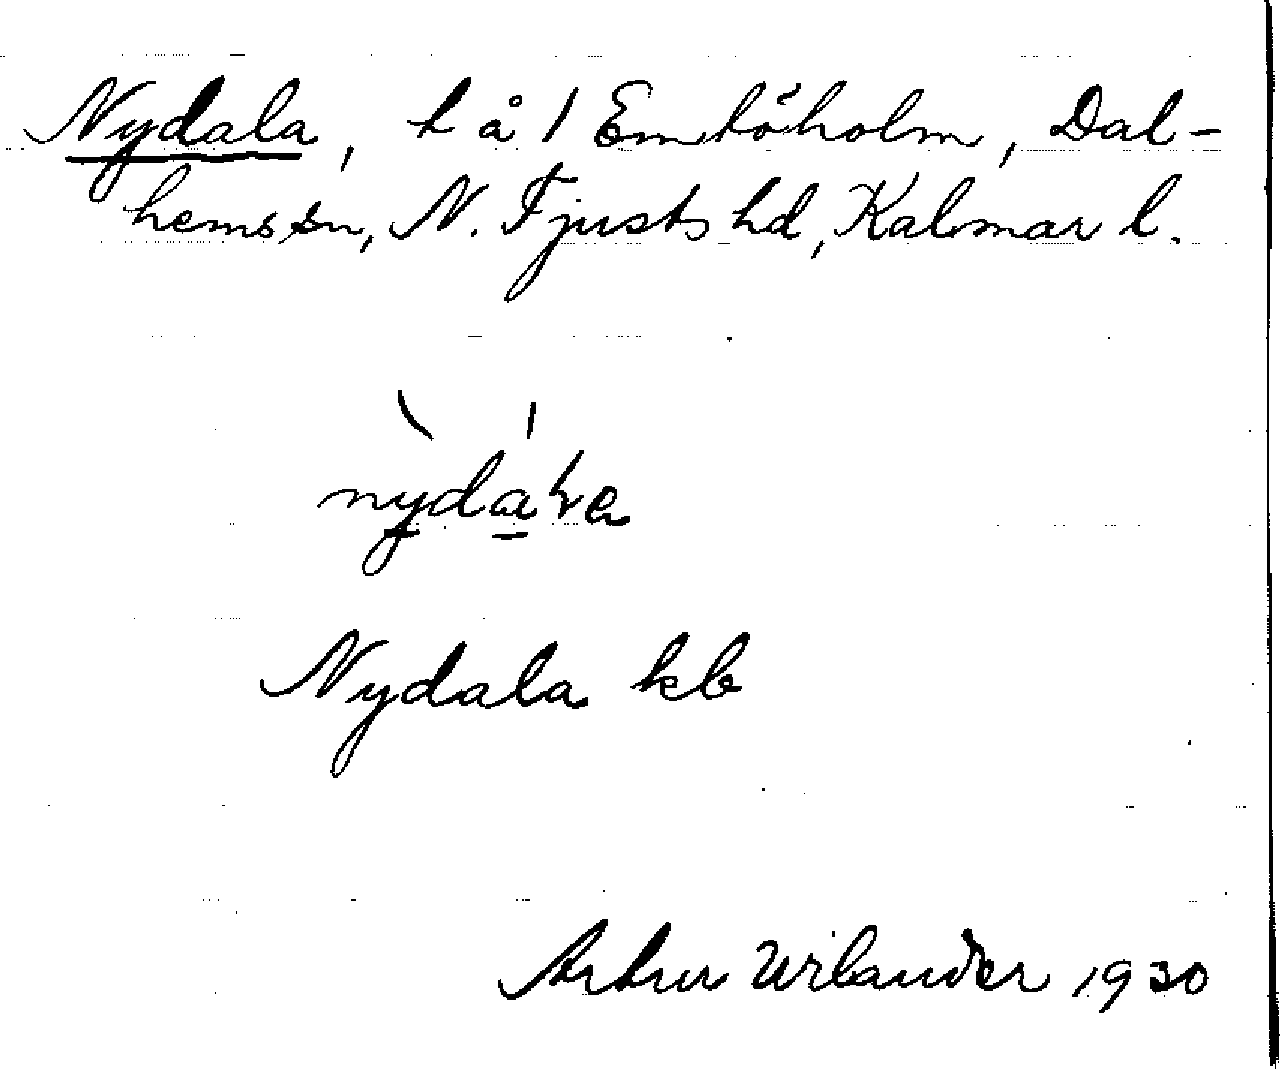 Nydala, t å 1 Emtöholm, Dal-
hems sn, N. Tjusts hd, Kalmar l.
nydala
Nydala kb
Artur Urlander 1930